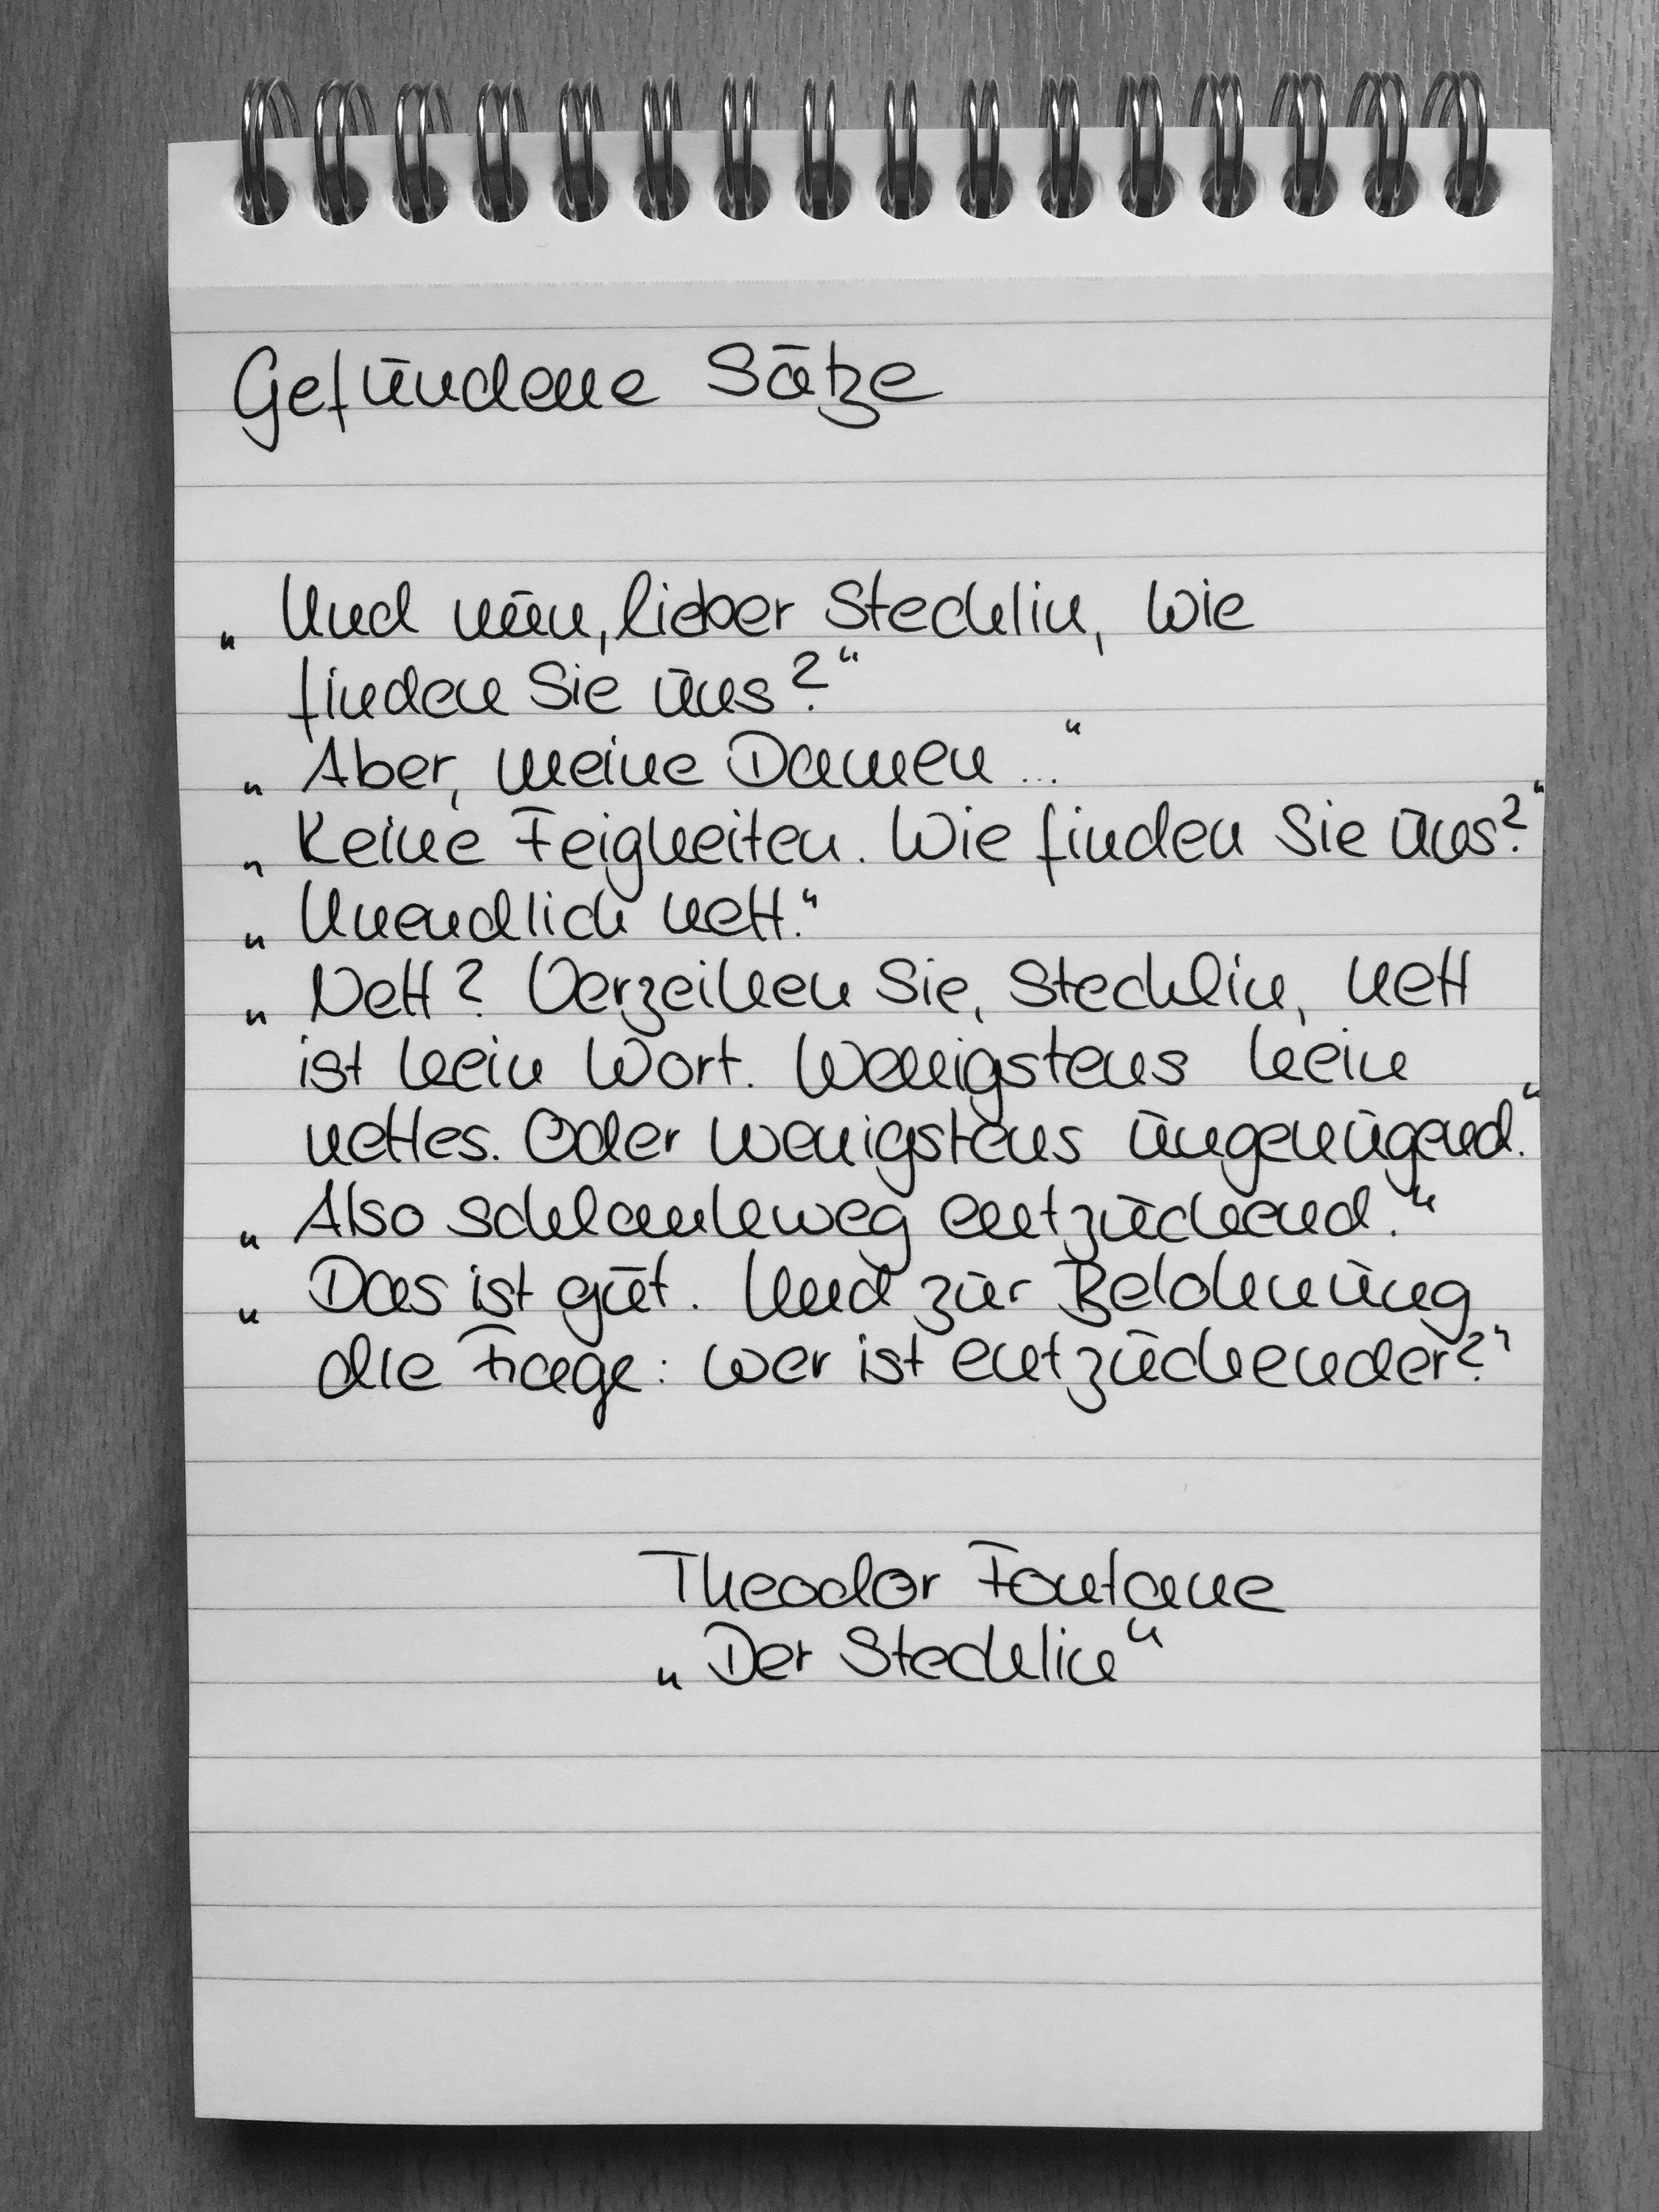 Gefundene Sätze
„Und nun, lieber Stechlin, wie
finden Sie uns?“
„Aber, meine Damen ...“
„Keine Feigheiten. Wie finden Sie uns?“
„Unendlich nett.“
„Nett? Verzeihen Sie, Stechlin, nett
ist kein Wort. Wenigstens kein
nettes. Oder wenigstens ungenügend.“
„Also schlankweg entzückend.“
„Das ist gut. Und zur Belohnung
die Frage: wer ist entzückender?“
Theodor Fontane
„Der Stechlin“